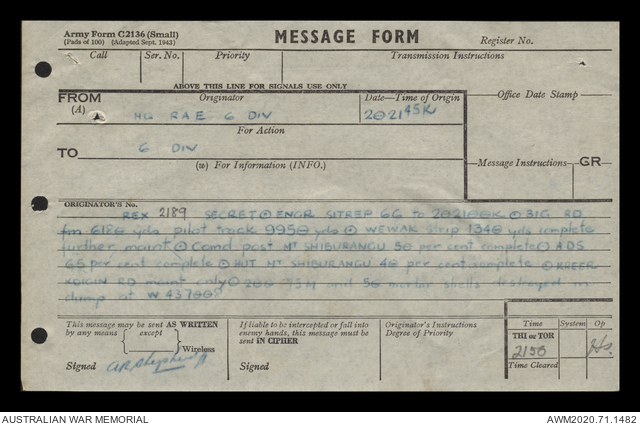 Army Form C2136 (Small)
(Pads of 100) (Adapted Sept. 1943)
MESSAGE FORM
Register No.
Call
Ser. No.
Priority
Transmission Instructions
ABOVE THIS LINE FOR SIGNALS USE ONLY
FROM
(A)
Originator
HQ RAE 6 DIV
Date—Time of Origin
202145K
Office Date Stamp
For Action
TO
6 DIV
(w) For Information (INFO.)
Message Instructions
GR
ORIGINATOR'S No.
REX 2189 SECRET ⊙ ENGR SITREP 66 to 202100K ⊙ BIG RD
fm 6180 yds pilot track 9950 yds ⊙ WEWAK strip 1340 yds complete
further maint ⊙ Comd post MT SHIBURANGU 50 per cent complete ⊙ ADS
65 per cent complete ⊙ HUT MT SHIBURANGU 40 per cent complete ⊙
KOIGIN RD maint only ⊙ 200 75M and 50 mortar shells destroyed in
dump at W
This message may be sent AS WRITTEN
by any means
except
Wireless
Signed
If liable to be intercepted or fall into
enemy hands, this message must be
sent IN CIPHER
Signed
Originator's Instructions
Degree of Priority
Time
System
Op
THI or TOR
2150
Time Cleared
AUSTRALIAN WAR MEMORIAL
AWM2020.71.1482